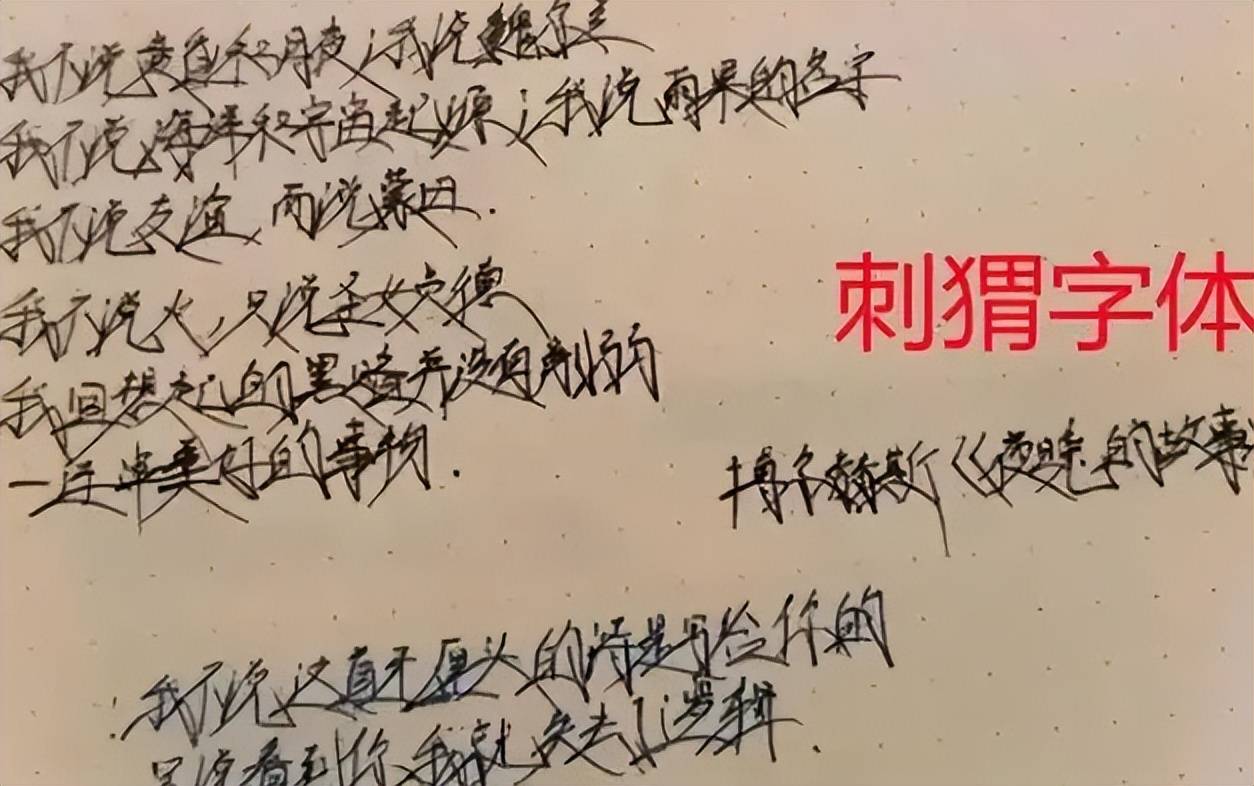 我不说黄色和月夜；我说魏尔兰
我不说海洋和宇宙起源；我说雨果的名字
我不说友谊，而说蒙田.
刺猬字体
我不说火，只说圣女贞德
我回想起的黑暗并没有削弱
一连串美好的事物.
博尔赫斯《夜晚的故事
我不说这真不原头的诗是写给你的
只说看到你，我就失去了逻辑.